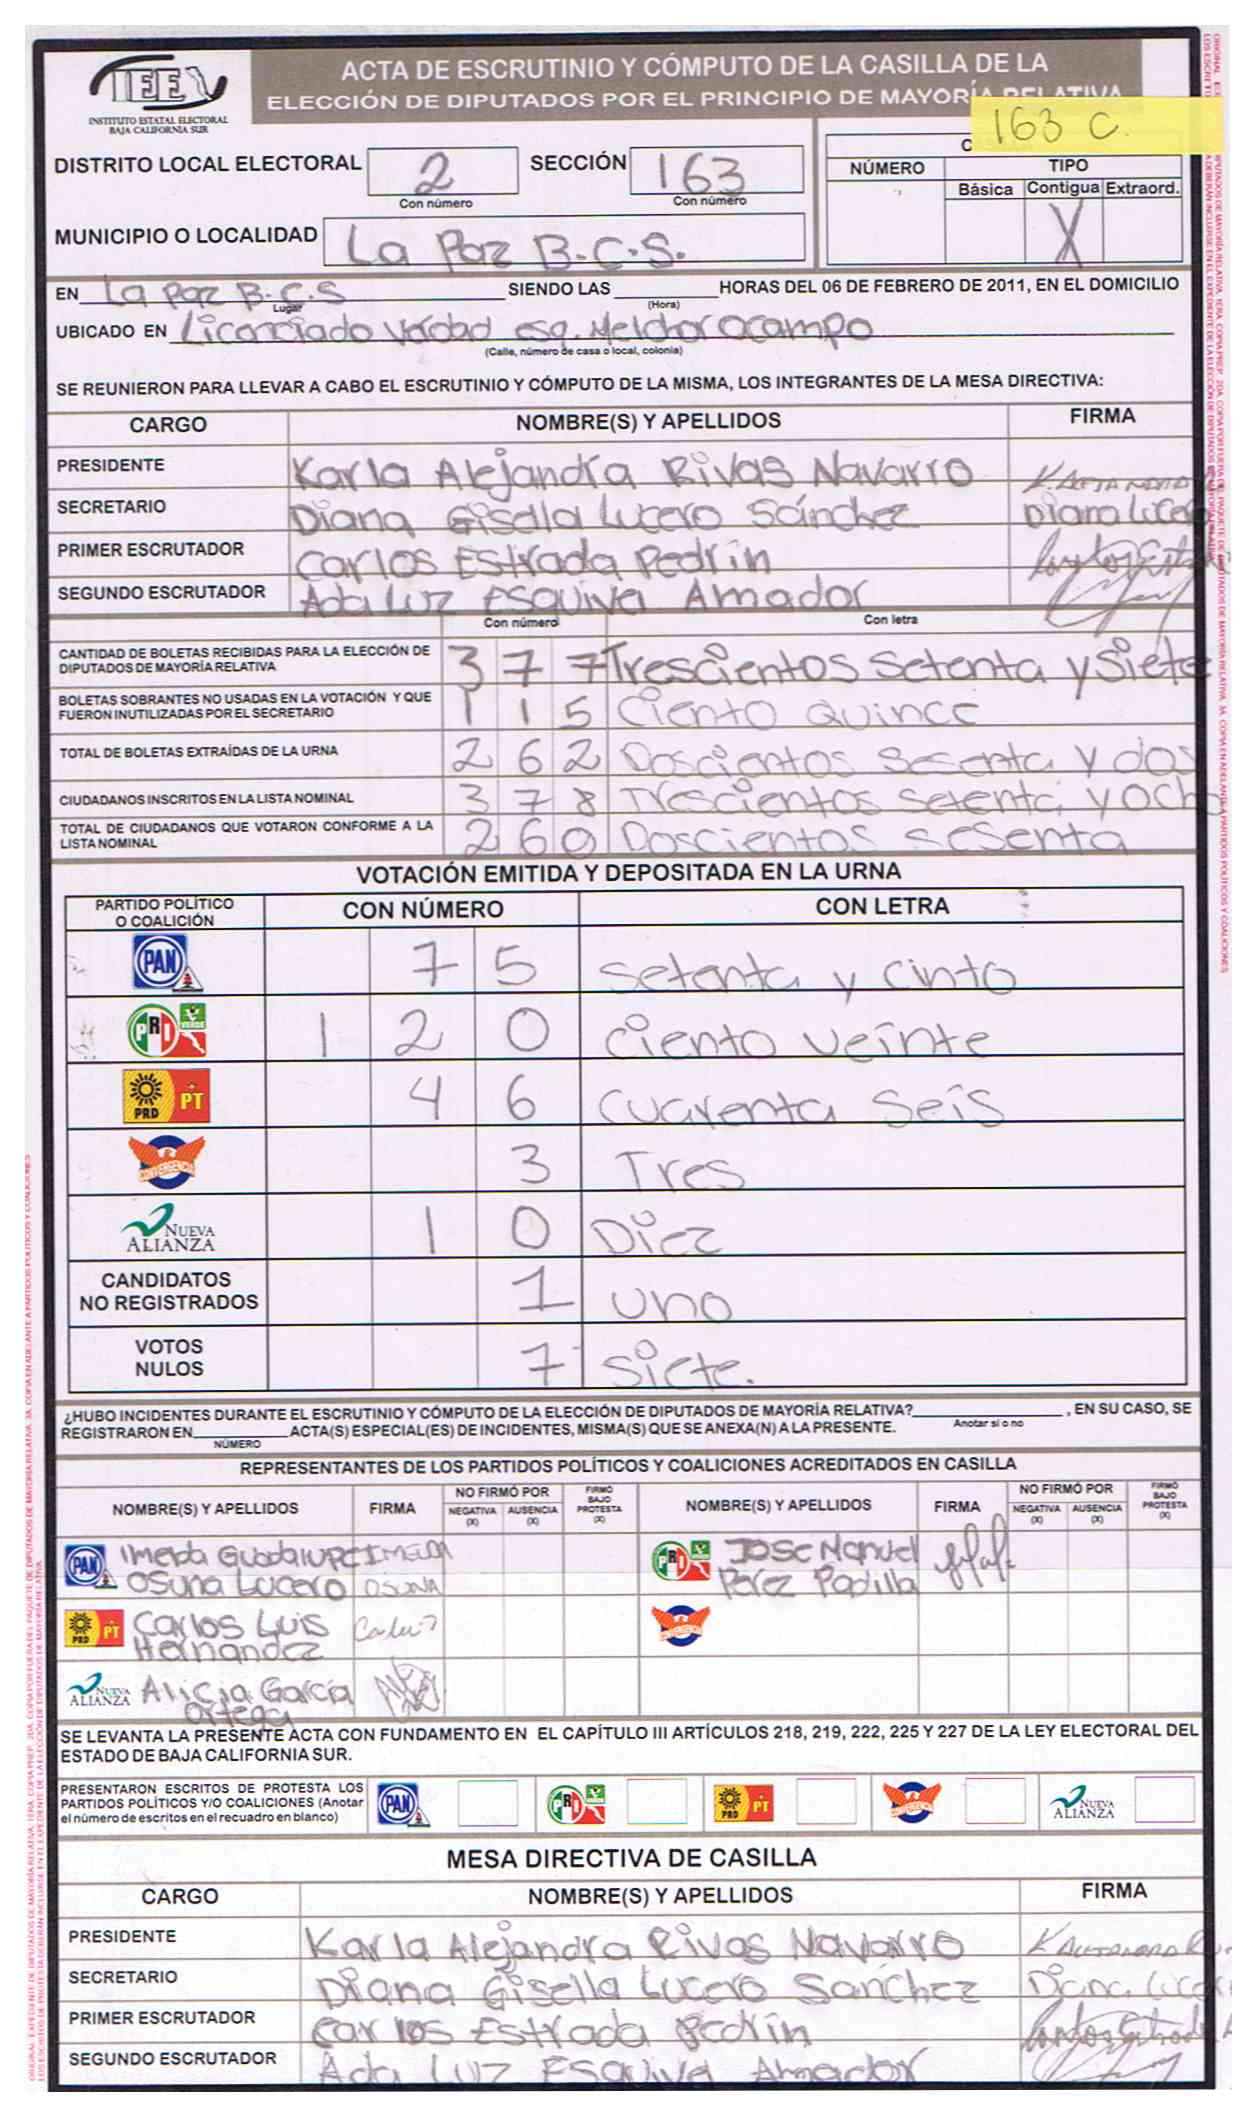 IEE
INSTITUTO ESTATAL ELECTORAL
BAJA CALIFORNIA SUR
ACTA DE ESCRUTINIO Y CÓMPUTO DE LA CASILLA DE LA
ELECCIÓN DE DIPUTADOS POR EL PRINCIPIO DE MAYORÍA RELATIVA
163 C.
DISTRITO LOCAL ELECTORAL 2 SECCIÓN 163
Con número Con número
NÚMERO TIPO
Básica Contigua Extraord.
X
MUNICIPIO O LOCALIDAD La Paz B.C.S.
EN La Paz B.C.S SIENDO LAS HORAS DEL 06 DE FEBRERO DE 2011, EN EL DOMICILIO
Lugar (Hora)
UBICADO EN Licenciado Verdad esq. Melchor Ocampo
(Calle, número de casa o local, colonia)
SE REUNIERON PARA LLEVAR A CABO EL ESCRUTINIO Y CÓMPUTO DE LA MISMA, LOS INTEGRANTES DE LA MESA DIRECTIVA:
CARGO NOMBRE(S) Y APELLIDOS FIRMA
PRESIDENTE Karla Alejandra Rivas Navarro
SECRETARIO Diana Gisella Lucero Sánchez Diana Lucero
PRIMER ESCRUTADOR Carlos Estrada Pedrin
SEGUNDO ESCRUTADOR Ada Luz Esquivel Amador
Con número Con letra
CANTIDAD DE BOLETAS RECIBIDAS PARA LA ELECCIÓN DE
DIPUTADOS DE MAYORÍA RELATIVA 3 7 7 Trescientos Setenta y Siete
BOLETAS SOBRANTES NO USADAS EN LA VOTACIÓN Y QUE
FUERON INUTILIZADAS POR EL SECRETARIO 1 1 5 Ciento Quince
TOTAL DE BOLETAS EXTRAÍDAS DE LA URNA 2 6 2 Doscientos Sesenta y dos
CIUDADANOS INSCRITOS EN LA LISTA NOMINAL 3 7 8 Trescientos Setenta y Ocho
TOTAL DE CIUDADANOS QUE VOTARON CONFORME A LA
LISTA NOMINAL 2 6 0 Doscientos Sesenta
VOTACIÓN EMITIDA Y DEPOSITADA EN LA URNA
PARTIDO POLÍTICO
O COALICIÓN CON NÚMERO CON LETRA
PAN 7 5 Setenta y Cinto
PRI VERDE 1 2 0 Ciento Veinte
PRD PT 4 6 Cuarenta Seis
CONVERGENCIA 3 Tres
NUEVA ALIANZA 1 0 Diez
CANDIDATOS
NO REGISTRADOS 1 uno
VOTOS
NULOS 7 Siete.
¿HUBO INCIDENTES DURANTE EL ESCRUTINIO Y CÓMPUTO DE LA ELECCIÓN DE DIPUTADOS DE MAYORÍA RELATIVA? , EN SU CASO, SE
Anotar sí o no
REGISTRARON EN ACTA(S) ESPECIAL(ES) DE INCIDENTES, MISMA(S) QUE SE ANEXA(N) A LA PRESENTE.
NÚMERO
REPRESENTANTES DE LOS PARTIDOS POLÍTICOS Y COALICIONES ACREDITADOS EN CASILLA
NOMBRE(S) Y APELLIDOS FIRMA NO FIRMÓ POR NEGATIVA (X) AUSENCIA (X) FIRMÓ BAJO PROTESTA (X) NOMBRE(S) Y APELLIDOS FIRMA NO FIRMÓ POR NEGATIVA (X) AUSENCIA (X) FIRMÓ BAJO PROTESTA (X)
PAN Imelda Guadalupe IMELDA PRI Jose Manuel
Osuna Lucero OSUNA Perez Padilla
PRD PT Carlos Luis CONVERGENCIA
Hernandez
NUEVA ALIANZA Alicia García
Ortega
SE LEVANTA LA PRESENTE ACTA CON FUNDAMENTO EN EL CAPÍTULO III ARTÍCULOS 218, 219, 222, 225 Y 227 DE LA LEY ELECTORAL DEL
ESTADO DE BAJA CALIFORNIA SUR.
PRESENTARON ESCRITOS DE PROTESTA LOS
PARTIDOS POLÍTICOS Y/O COALICIONES (Anotar
el número de escritos en el recuadro en blanco) PAN PRI PRD PT CONVERGENCIA NUEVA ALIANZA
MESA DIRECTIVA DE CASILLA
CARGO NOMBRE(S) Y APELLIDOS FIRMA
PRESIDENTE Karla Alejandra Rivas Navarro
SECRETARIO Diana Gisella Lucero Sanchez Diana Lucero
PRIMER ESCRUTADOR Carlos Estrada Pedrín
SEGUNDO ESCRUTADOR Ada Luz Esquivel Amador